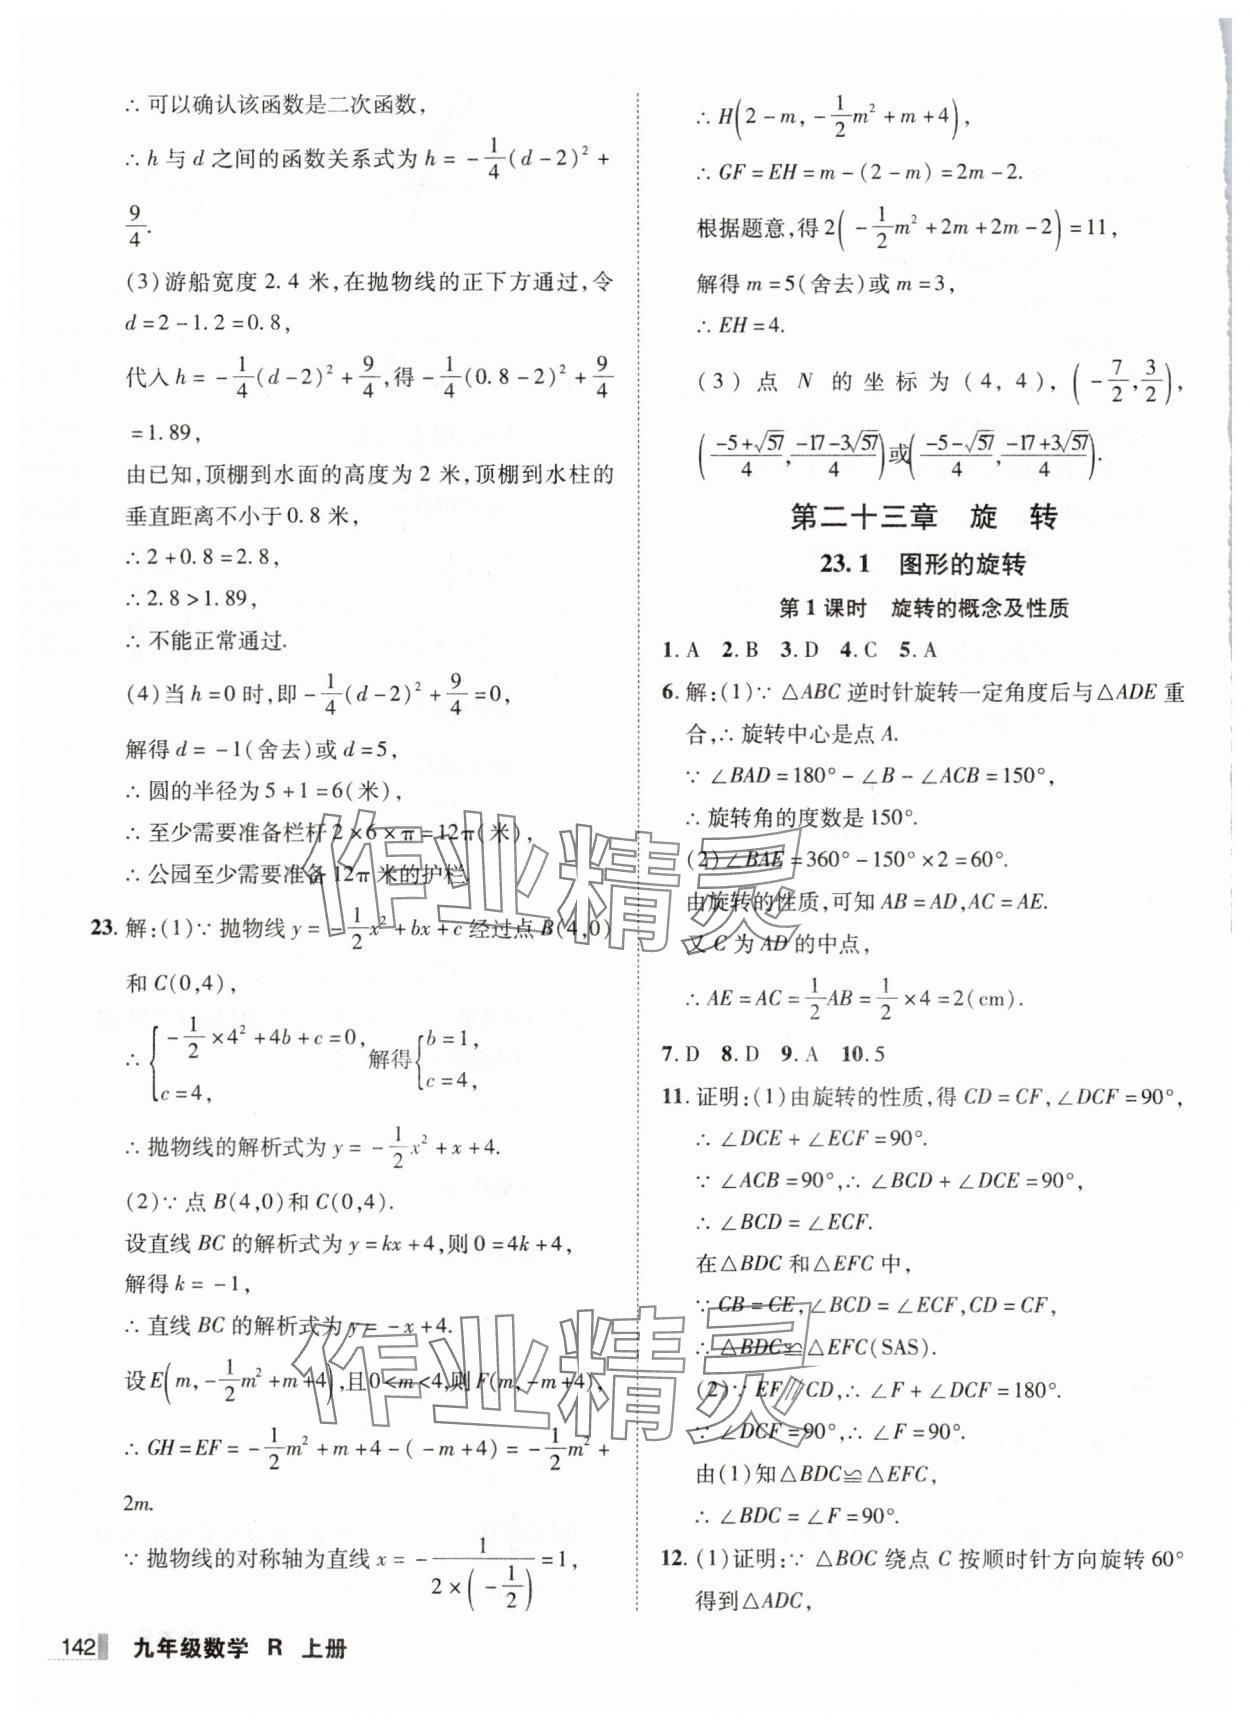 ∴ 可以确认该函数是二次函数,
∴ h 与 d 之间的函数关系式为 h = -1/4(d-2)² +
9/4.
(3)游船宽度 2.4 米,在抛物线的正下方通过,令
d=2-1.2=0.8,
代入 h = -1/4(d-2)²+9/4,得-1/4(0.8-2)²+9/4
=1.89,
由已知,顶棚到水面的高度为 2 米,顶棚到水柱的
垂直距离不小于 0.8 米,
∴ 2+0.8=2.8,
∴ 2.8>1.89,
∴ 不能正常通过.
(4)当 h=0 时,即-1/4(d-2)²+9/4=0,
解得 d = -1(舍去)或 d=5,
∴ 圆的半径为 5+1=6(米),
∴ 至少需要准备栏杆 2×6×π=12π(米),
∴ 公园至少需要准备 12π 米的护栏.
23. 解:(1)∵ 抛物线 y = -1/2x²+bx+c 经过点 B(4,0)
和 C(0,4),
∴ { -1/2×4²+4b+c=0, c=4, 解得 { b=1, c=4,
∴ 抛物线的解析式为 y = -1/2x²+x+4.
(2)∵ 点 B(4,0)和 C(0,4).
设直线 BC 的解析式为 y=kx+4,则 0=4k+4,
解得 k = -1,
∴ 直线 BC 的解析式为 y= -x+4.
设 E(m,-1/2m²+m+4),且 0<m<4,则 F(m,-m+4),
∴ GH=EF= -1/2m²+m+4-(-m+4)= -1/2m²+
2m.
∵ 抛物线的对称轴为直线 x = -1/(2×(-1/2))=1,
∴ H(2-m,-1/2m²+m+4),
∴ GF=EH=m-(2-m)=2m-2.
根据题意,得 2(-1/2m²+2m+2m-2)=11,
解得 m=5(舍去)或 m=3,
∴ EH=4.
(3)点 N 的坐标为(4,4),(-7/2,3/2),
((-5+√57)/4,(-17-3√57)/4)或((-5-√57)/4,(-17+3√57)/4).
第二十三章 旋 转
23.1 图形的旋转
第 1 课时 旋转的概念及性质
1. A 2. B 3. D 4. C 5. A
6. 解:(1)∵ △ABC 逆时针旋转一定角度后与△ADE 重
合,∴ 旋转中心是点 A.
∵ ∠BAD=180°-∠B-∠ACB=150°,
∴ 旋转角的度数是 150°.
(2)∠BAE=360°-150°×2=60°.
由旋转的性质,可知 AB=AD,AC=AE.
又 C 为 AD 的中点,
∴ AE=AC=1/2AB=1/2×4=2(cm).
7. D 8. D 9. A 10. 5
11. 证明:(1)由旋转的性质,得 CD=CF,∠DCF=90°,
∴ ∠DCE+∠ECF=90°.
∵ ∠ACB=90°,∴ ∠BCD+∠DCE=90°,
∴ ∠BCD=∠ECF.
在△BDC 和△EFC 中,
∵ CB=CE,∠BCD=∠ECF,CD=CF,
∴ △BDC≌△EFC(SAS).
(2)∵ EF∥CD,∴ ∠F+∠DCF=180°.
∵ ∠DCF=90°,∴ ∠F=90°.
由(1)知△BDC≌△EFC,
∴ ∠BDC=∠F=90°.
12. (1)证明:∵ △BOC 绕点 C 按顺时针方向旋转 60°
得到△ADC,
142 九年级数学 R 上册
作业精灵
作业精灵